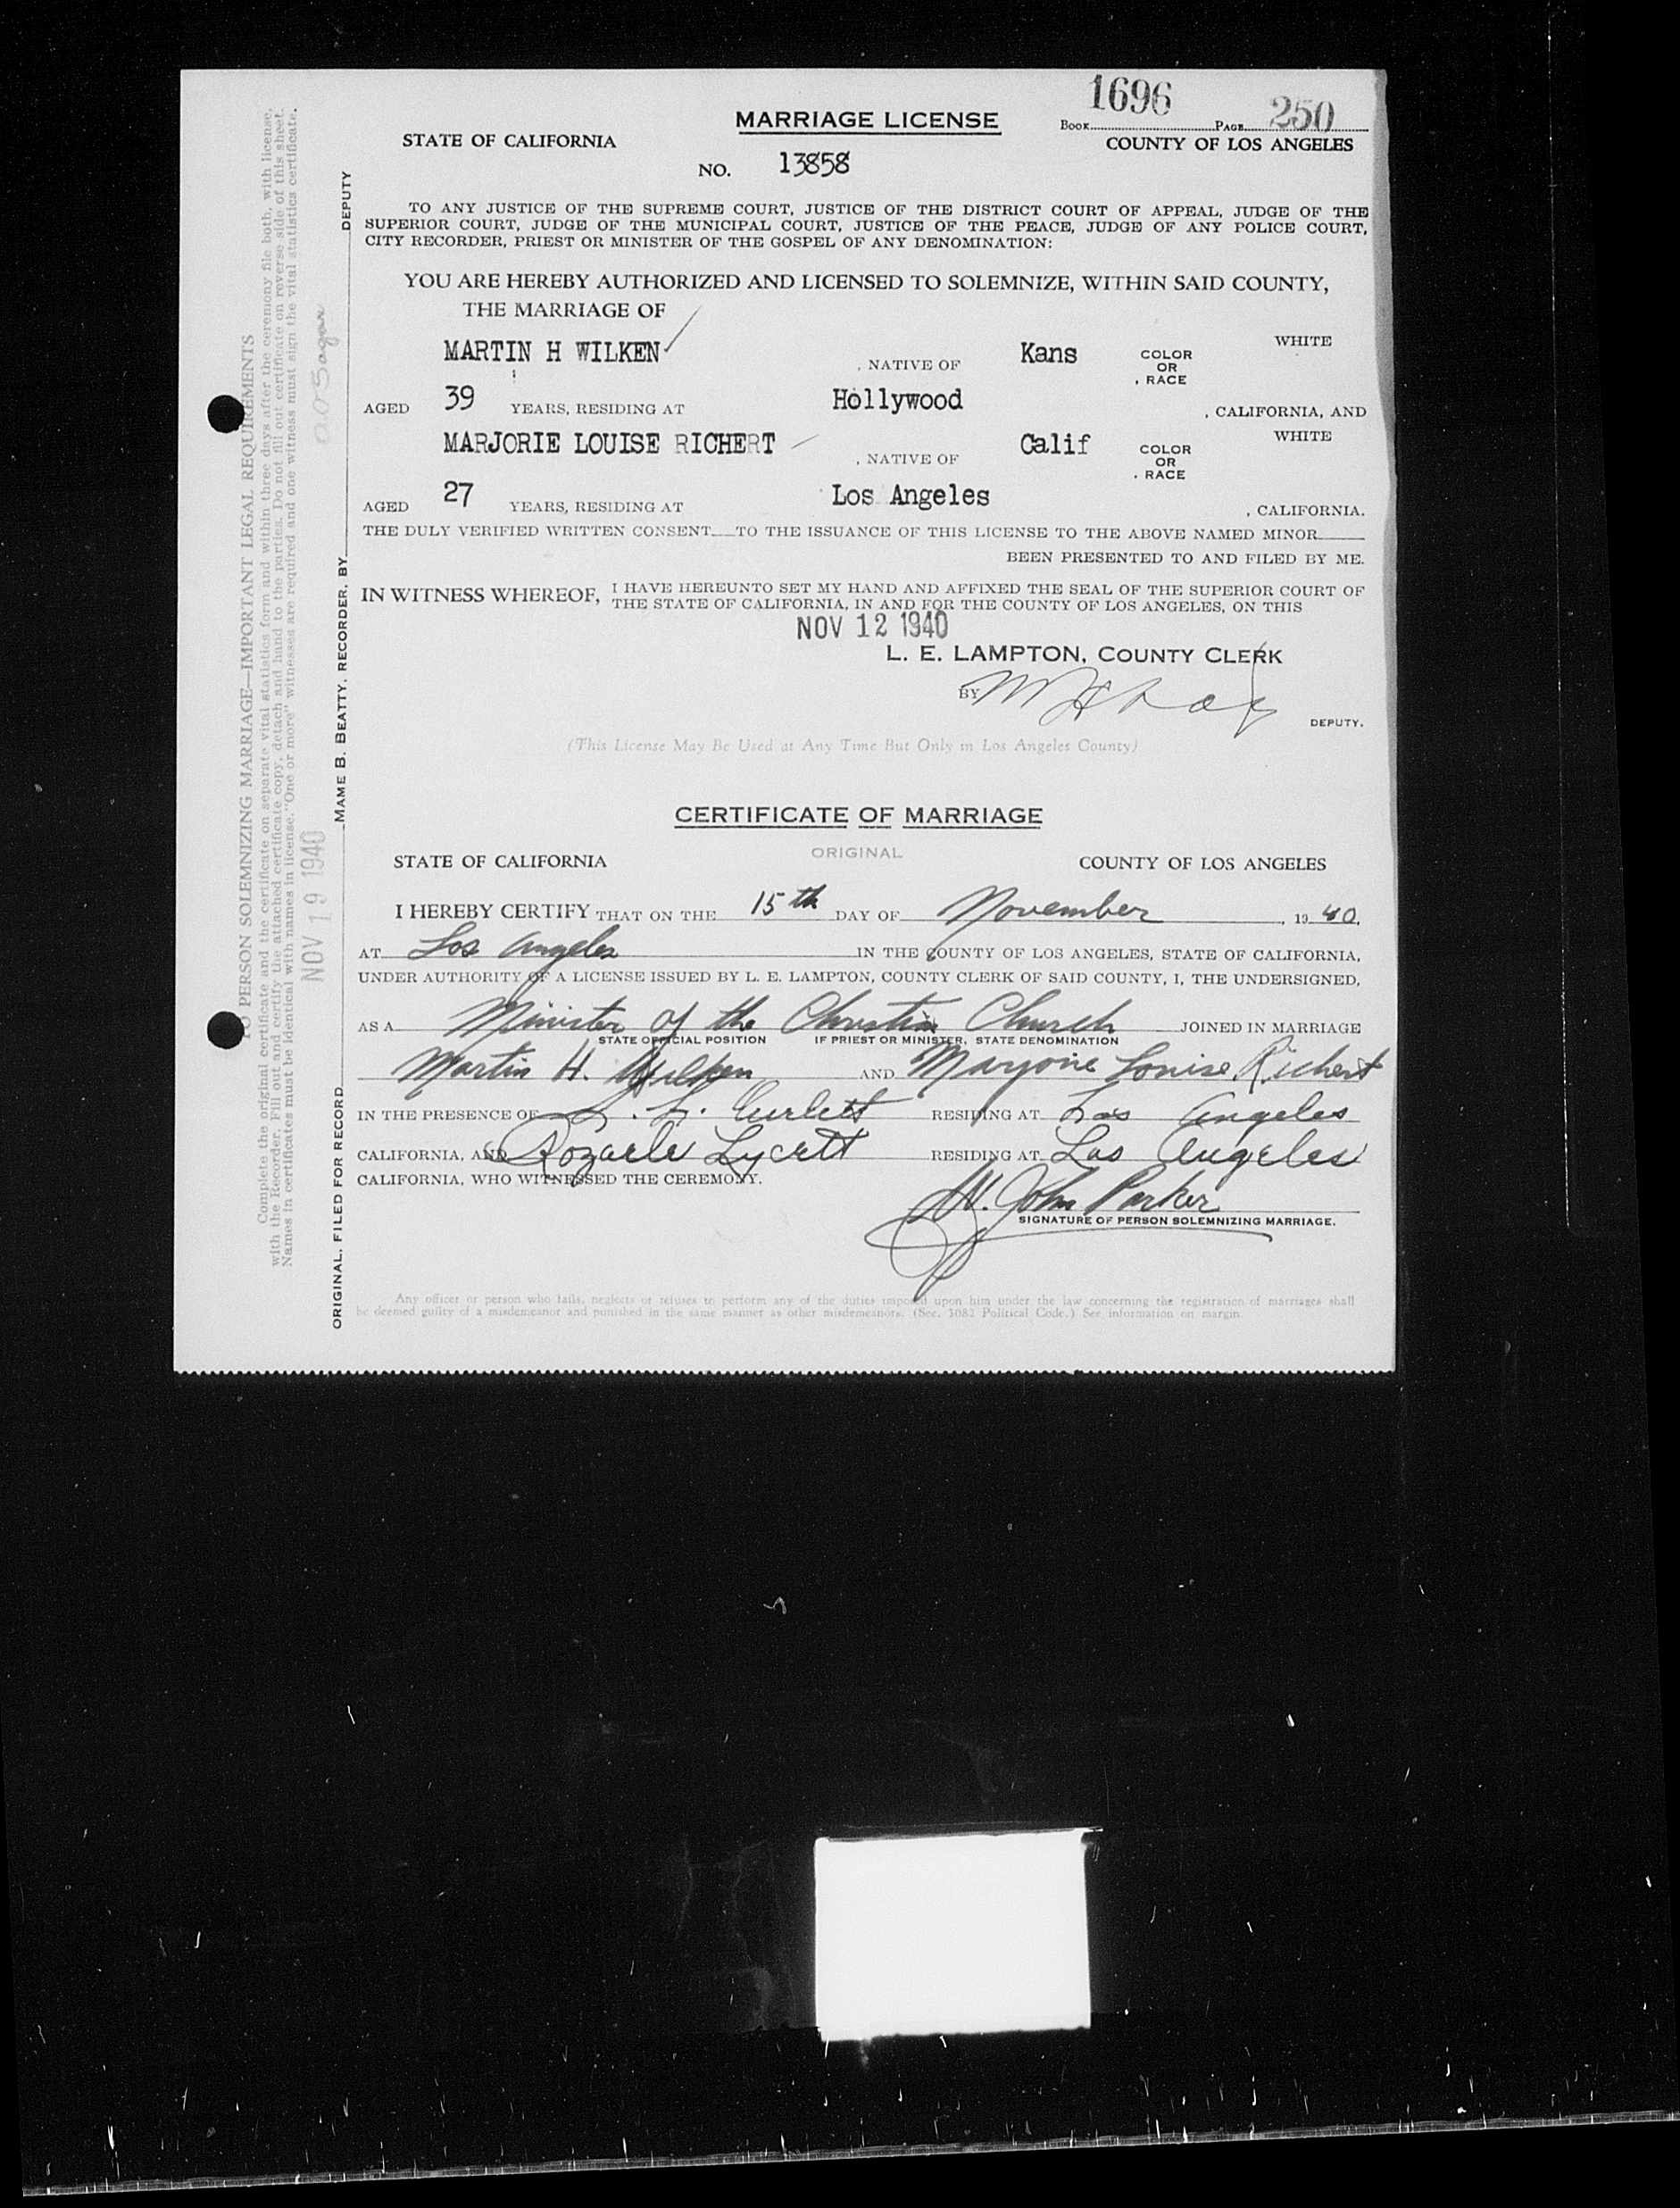 1696 250
MARRIAGE LICENSE
BOOK PAGE
STATE OF CALIFORNIA COUNTY OF LOS ANGELES
NO. 13858
TO ANY JUSTICE OF THE SUPREME COURT, JUSTICE OF THE DISTRICT COURT OF APPEAL, JUDGE OF THE
SUPERIOR COURT, JUDGE OF THE MUNICIPAL COURT, JUSTICE OF THE PEACE, JUDGE OF ANY POLICE COURT,
CITY RECORDER, PRIEST OR MINISTER OF THE GOSPEL OF ANY DENOMINATION:
YOU ARE HEREBY AUTHORIZED AND LICENSED TO SOLEMNIZE, WITHIN SAID COUNTY,
THE MARRIAGE OF
MARTIN H WILKEN , NATIVE OF Kans COLOR OR , RACE WHITE
AGED 39 YEARS, RESIDING AT Hollywood , CALIFORNIA, AND
MARJORIE LOUISE RICHERT , NATIVE OF Calif COLOR OR , RACE WHITE
AGED 27 YEARS, RESIDING AT Los Angeles , CALIFORNIA.
THE DULY VERIFIED WRITTEN CONSENT TO THE ISSUANCE OF THIS LICENSE TO THE ABOVE NAMED MINOR
BEEN PRESENTED TO AND FILED BY ME.
IN WITNESS WHEREOF, I HAVE HEREUNTO SET MY HAND AND AFFIXED THE SEAL OF THE SUPERIOR COURT OF
THE STATE OF CALIFORNIA, IN AND FOR THE COUNTY OF LOS ANGELES, ON THIS
NOV 12 1940
L. E. LAMPTON, COUNTY CLERK
BY
DEPUTY.
(This License May Be Used at Any Time But Only in Los Angeles County)
CERTIFICATE OF MARRIAGE
ORIGINAL
STATE OF CALIFORNIA COUNTY OF LOS ANGELES
I HEREBY CERTIFY THAT ON THE 15th DAY OF November , 19 40,
AT Los Angeles IN THE COUNTY OF LOS ANGELES, STATE OF CALIFORNIA,
UNDER AUTHORITY OF A LICENSE ISSUED BY L. E. LAMPTON, COUNTY CLERK OF SAID COUNTY, I, THE UNDERSIGNED,
AS A Minister of the Christian Church JOINED IN MARRIAGE
STATE OFFICIAL POSITION IF PRIEST OR MINISTER, STATE DENOMINATION
Martin H. Wilken AND Marjorie Louise Richert
IN THE PRESENCE OF RESIDING AT Los Angeles
CALIFORNIA, AND Lycett RESIDING AT Los Angeles
CALIFORNIA, WHO WITNESSED THE CEREMONY.
W. John Parker
SIGNATURE OF PERSON SOLEMNIZING MARRIAGE.
Any officer or person who fails, neglects or refuses to perform any of the duties imposed upon him under the law concerning the registration of marriages shall
be deemed guilty of a misdemeanor and punished in the same manner as other misdemeanors. (Sec. 3082 Political Code.) See information on margin.
TO PERSON SOLEMNIZING MARRIAGE—IMPORTANT LEGAL REQUIREMENTS
Complete the original certificate and the certificate on separate vital statistics form and within three days after the ceremony file both, with license,
with the Recorder. Fill out and certify the attached certificate copy, detach and hand to the parties. Do not fill out certificate on reverse side of this sheet.
Names in certificates must be identical with names in license. "One or more" witnesses are required and one witness must sign the vital statistics certificate.
NOV 19 1940
ORIGINAL. FILED FOR RECORD MAME B. BEATTY, RECORDER. BY DEPUTY